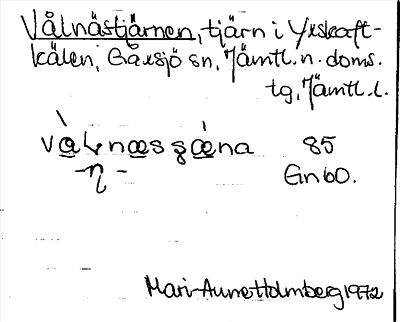 Vålnästjärnen, tjärn i Yxskaft-
kälen, Gåxsjö sn, Jämtl. n. doms.
tg, Jämtl. l.
85
-η- Gn60.
Mari-Anne Holmberg 1972